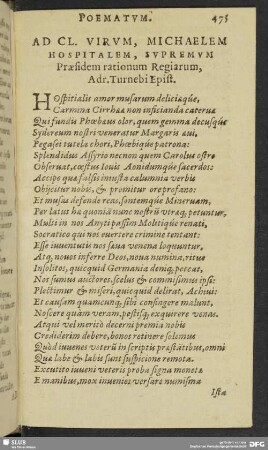 POEMATVM. 475
AD CL. VIRVM, MICHAELEM
HOSPITALEM, SVPREMVM
Præsidem rationum Regiarum,
Adr. Turnebi Epist.
HOspitalis amor musarum deliciæque,
Carmina Cirrhæa non inficianda caterua
Qui fundis Phœbæus olor, quem gemma decusque
Sydereum nostri veneratur Margaris æui,
Pegasei tutela chori, Phœbique patrona:
Splendidus Assyrio necnon quem Carolus ostro
Obseruat, cœtus Iouis Aonidumque sacerdos:
Accipe quæ falsi inusta calumnia verbis
Obijcitur nobis, & promitur ore profano:
Et musas defende reas, sontemque Mineruam,
Per latus hæ quoniā nunc nostrū vtraque petuntur,
Multi in nos Anyti passim Melitique renati,
Socratico qui nos euertere crimine tentant:
Esse iuuentuti nos sæua venena loquuntur,
Atque nouos inferre Deos, noua numina, ritus
Insolitos, quicquid Germania denique peccat,
Nos sumus auctores, scelus & commisimus ipsi:
Plectimur & miseri, quicquid delirat, Achiui:
Et causam quamcunque sibi confingere malunt,
Noscere quàm veram, pestisque exquirere venas.
Atqui vel meritò decerni præmia nobis
Crediderim debere, bonos retinere solemus
Quòd iuuenes veterū in scriptis præstātibus, omni
Quæ labe & labis sunt suspicione remota.
Excutito iuueni veteris proba signa monetæ
E manibus, mox inueniet versare numisma
Ista